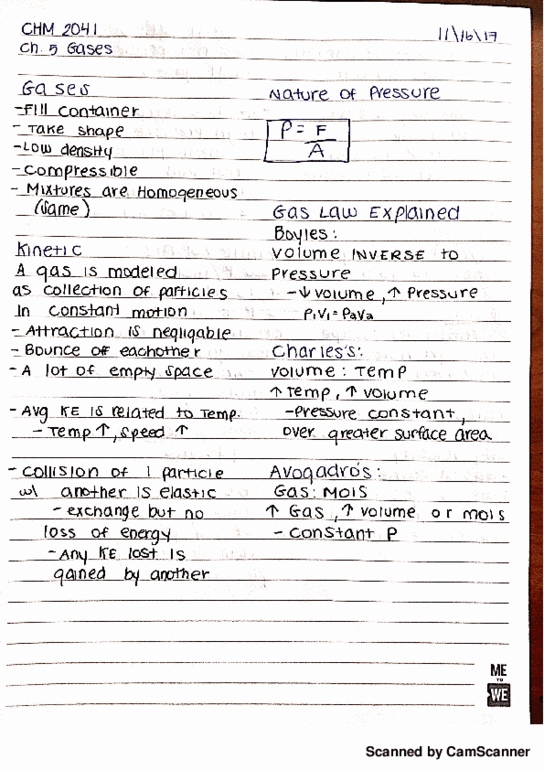 CHM 2041
11\16\17
Ch. 5 Gases
Gases
-Fill container
- Take shape
-Low density
-compressible
- Mixtures are Homogeneous
(same)
Kinetic
A gas is modeled
as collection of particles
In constant motion
- Attraction is negligable
- Bounce of eachother
- A lot of empty space
- Avg KE is related to Temp.
- Temp ↑, speed ↑
- collision of 1 particle
w\ another is elastic
- exchange but no
loss of energy
- Any KE lost is
gained by another
Nature of Pressure
P = F
A
Gas Law Explained
Boyles:
volume INVERSE to
Pressure
-↓ volume, ↑ Pressure
P1V1 = P2V2
Charles's:
volume : Temp
↑ Temp, ↑ volume
-Pressure constant,
over greater surface area
Avogadros:
Gas: Mols
↑ Gas, ↑ volume or mols
- constant P
ME
TO
WE
Scanned by CamScanner